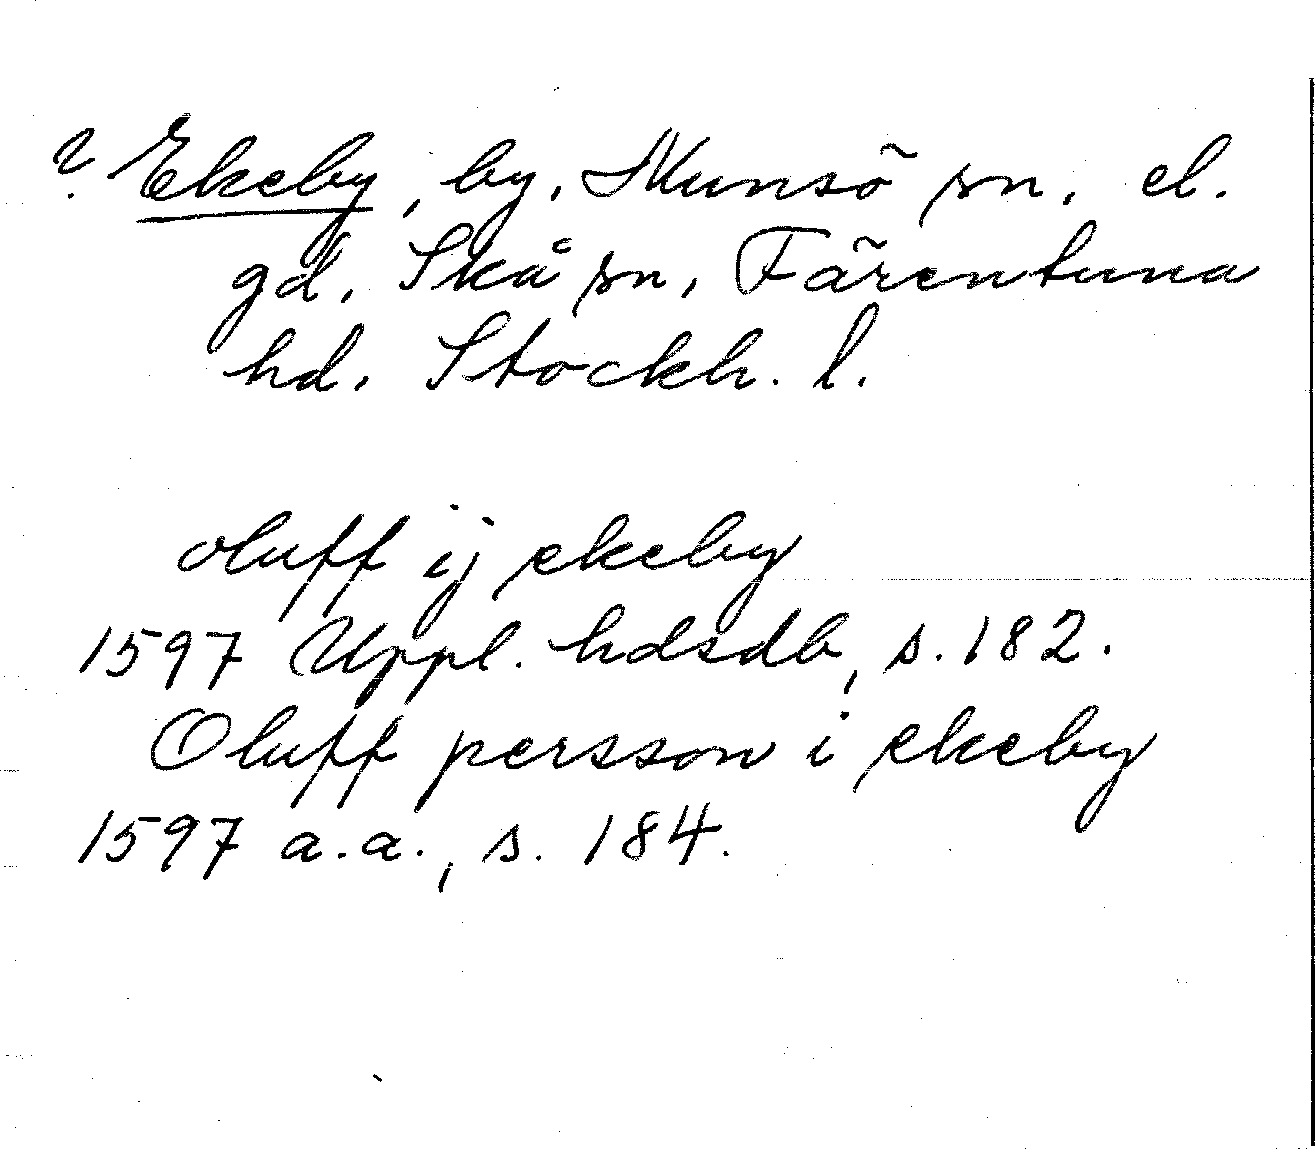 ? Ekeby, by, Munsö sn, el.
gd, Skå sn, Färentuna
hd. Stockh. l.
oluff ij ekeby
1597 Uppl. hdsdb, s. 182.
Oluff persson i ekeby
1597 a.a., s. 184.